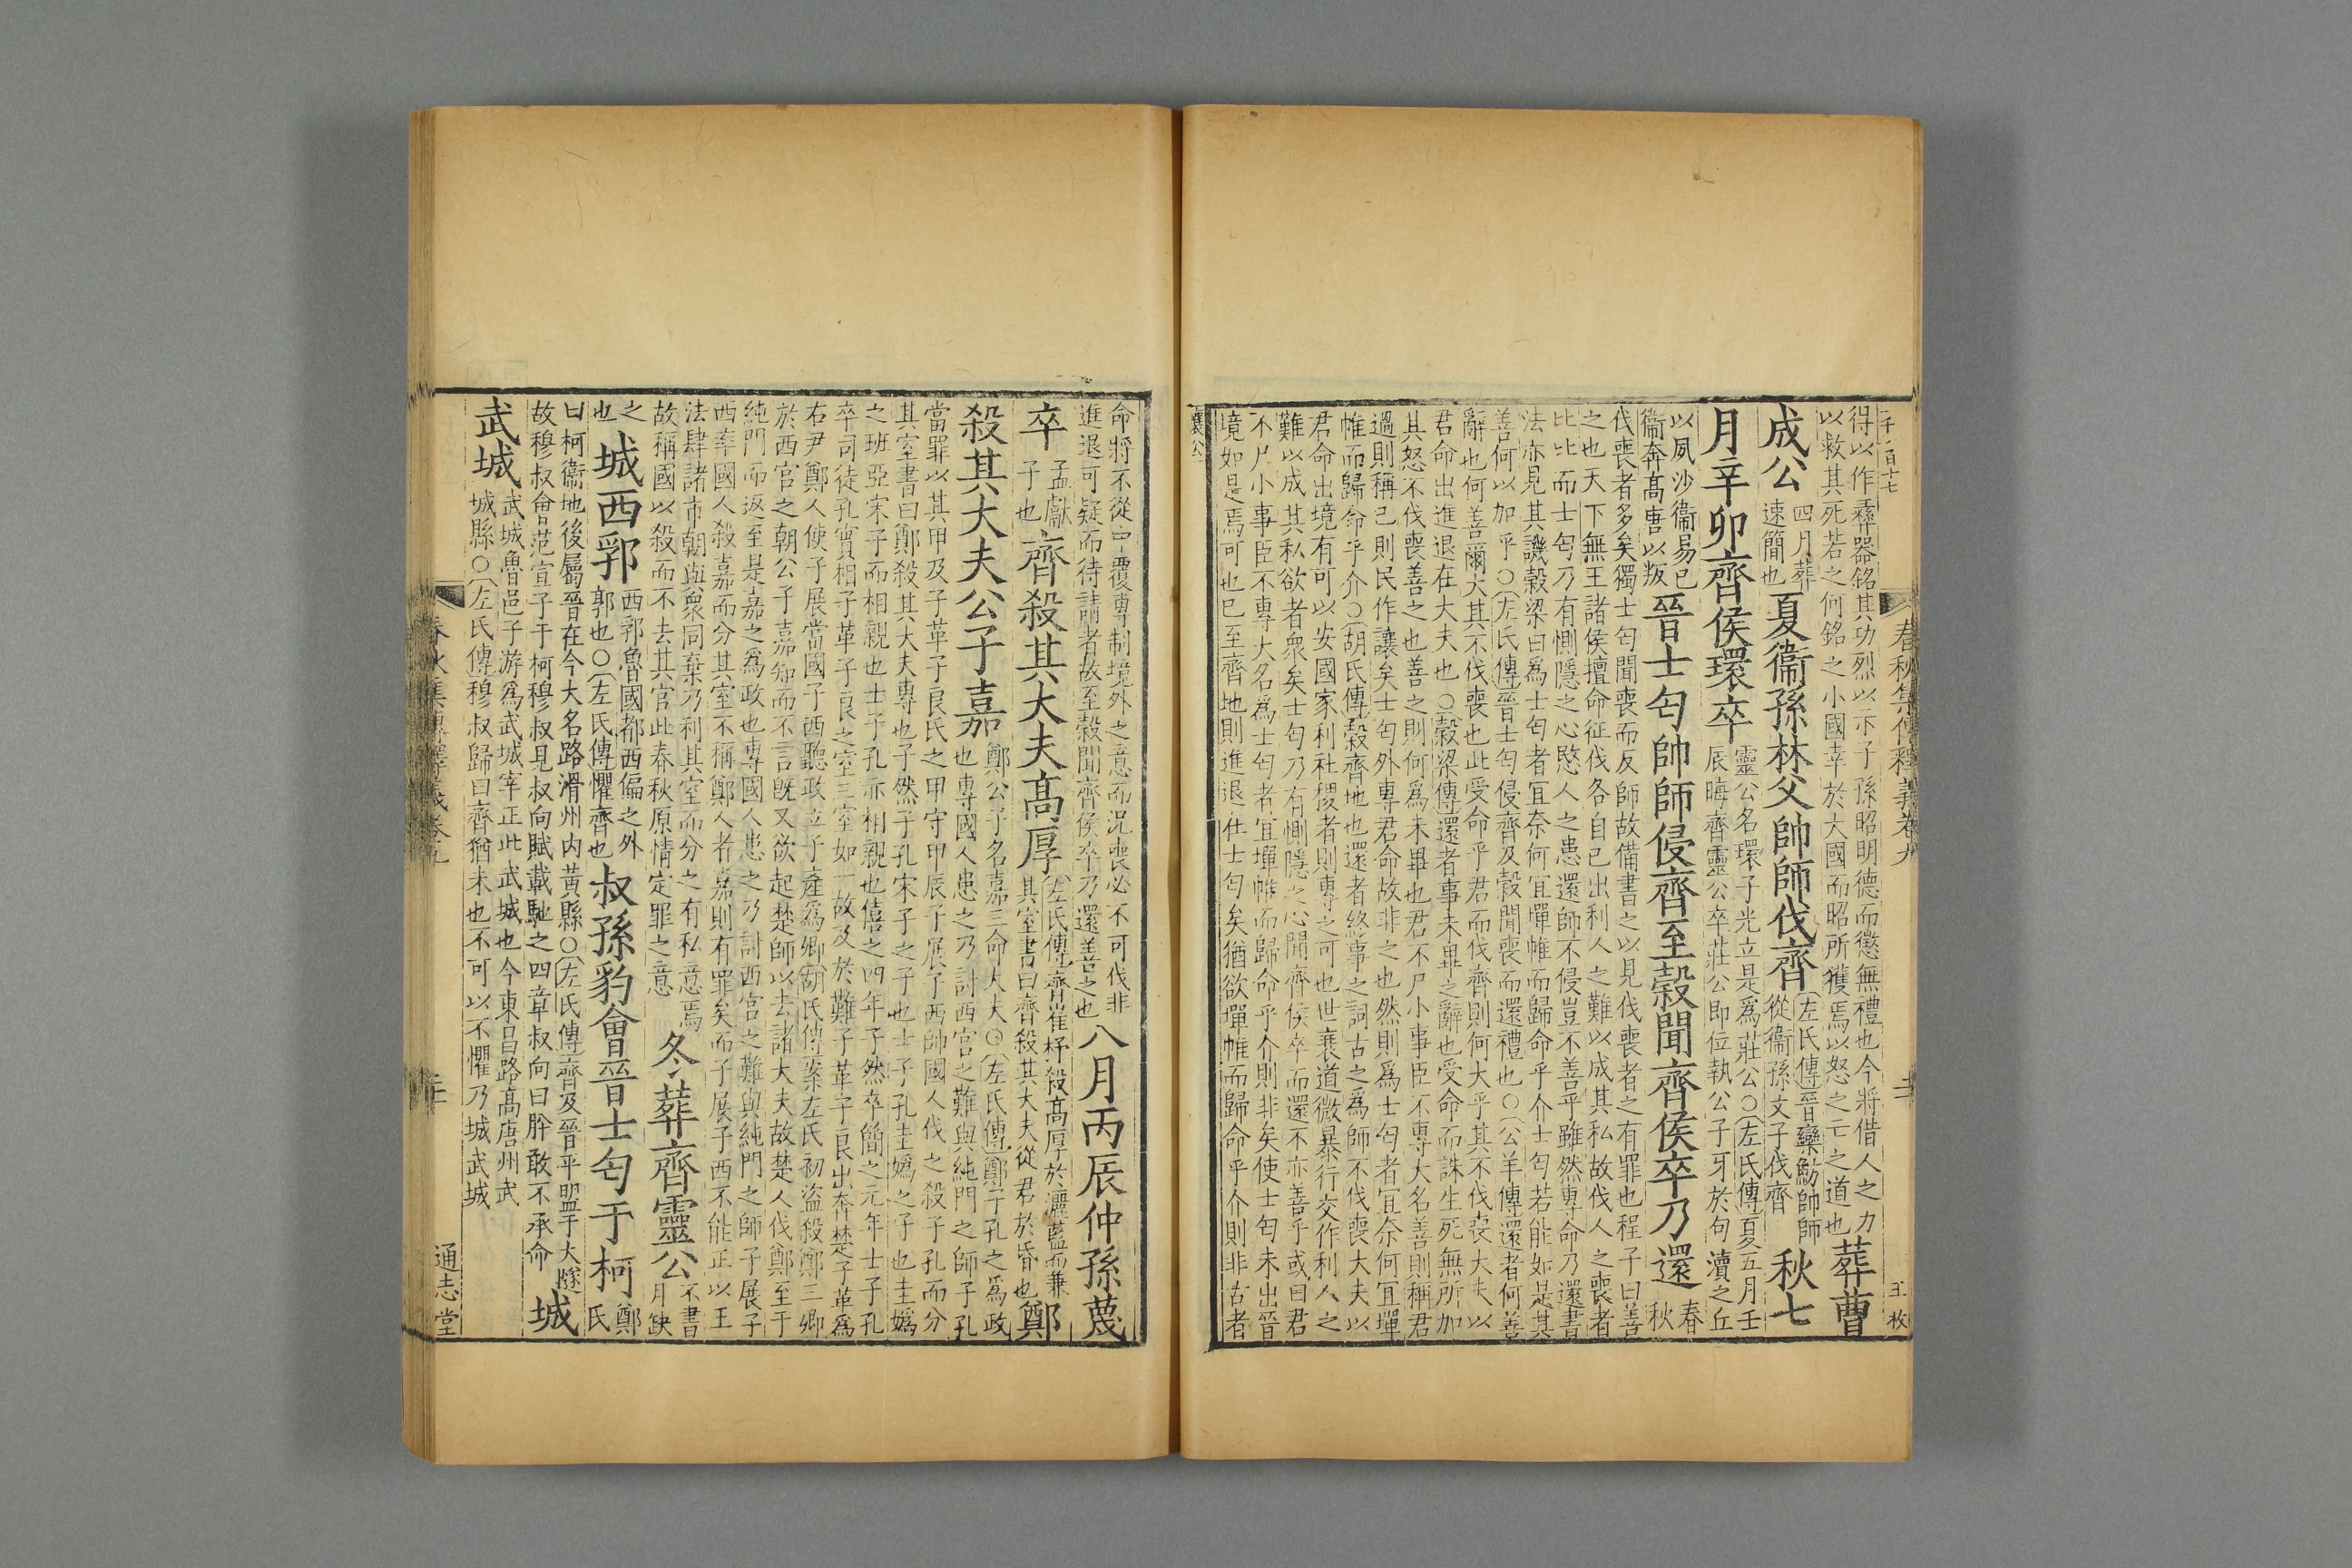 春秋集傳釋義卷九
王枚
得以作彝器銘其功烈以示子孫昭明德而懲無禮也今將借人之力
以救其死若之何銘之小國幸於大國而昭所獲焉以怒之亡之道也
葬曹
成公
四月葬
速簡也
夏衞孫林父帥師伐齊
左氏傳晉欒魴帥師
從衞孫文子伐齊
秋七
月辛卯齊侯環卒
靈公名環子光立是爲莊公○左氏傳夏五月壬
辰晦齊靈公卒莊公即位執公子牙於句瀆之丘
以夙沙衞易已
衞奔高唐以叛
晉士匄帥師侵齊至穀聞齊侯卒乃還
春
秋
伐喪者多矣獨士匄聞喪而反師故備書之以見伐喪者之有罪也程子曰善
之也天下無王諸侯擅命征伐各自已出利人之難以成其私故伐人之喪者
比比而士匄乃有惻隱之心愍人之患還師不侵豈不善乎雖然專命乃還書
法亦見其譏穀梁曰爲士匄者宜奈何宜墠帷而歸命乎介士匄若能如是其
善何以加乎○左氏傳晉士匄侵齊及穀聞喪而還禮也○公羊傳還者何善
辭也何善爾大其不伐喪也此受命乎君而伐齊則何大乎其不伐喪大夫以
君命出進退在大夫也○穀梁傳還者事未畢之辭也受命而誅生死無所加
其怒不伐喪善之也善之則何爲未畢也君不尸小事臣不專大名善則稱君
過則稱己則民作讓矣士匄外專君命故非之也然則爲士匄者宜奈何宜墠
帷而歸命乎介○胡氏傳穀齊地也還者終事之詞古之爲師不伐喪大夫以
君命出境有可以安國家利社稷者則專之可也世衰道微暴行交作利人之
難以成其私欲者衆矣士匄乃有惻隱之心聞齊侯卒而還不亦善乎或曰君
不尸小事臣不專大名爲士匄者宜墠帷而歸命乎介則非矣使士匄未出晉
境如是焉可也已至齊地則進退在士匄矣猶欲墠帷而歸命乎介則非古者
襄公
命將不從中覆專制境外之意而況喪必不可伐非
進退可疑而待請者故至穀聞齊侯卒乃還善之也
八月丙辰仲孫蔑
卒
孟獻
子也
齊殺其大夫高厚
左氏傳齊崔杼殺高厚於灑藍而兼
其室書曰齊殺其大夫從君於昏也
鄭
殺其大夫公子嘉
鄭公子名嘉三命大夫○左氏傳鄭子孔之爲政
也專國人患之乃討西宮之難與純門之師子孔
當罪以其甲及子革子良氏之甲守甲辰子展子西帥國人伐之殺子孔而分
其室書曰鄭殺其大夫專也子然子孔宋子之子也士子孔圭嬀之子也圭嬀
之班亞宋子而相親也士子孔亦相親也僖之四年子然卒簡之元年士子孔
卒司徒孔實相子革子良之室三室如一故及於難子革子良出奔楚子革爲
右尹鄭人使子展當國子西聽政立子產爲卿○胡氏傳案左氏初盜殺鄭三卿
於西宮之朝公子嘉知而不言旣又欲起楚師以去諸大夫故楚人伐鄭至于
純門而返至是嘉之爲政也專國人患之乃討西宮之難與純門之師子展子
西率國人殺嘉而分其室不稱鄭人者嘉則有罪矣而子展子西不能正以王
法肆諸市朝與衆同棄乃利其室而分之有私意焉
故稱國以殺而不去其官此春秋原情定罪之意
冬葬齊靈公
不書
月缺
之
也
城西郛
西郛魯國都西偏之外
郭也○左氏傳懼齊也
叔孫豹會晉士匄于柯
鄭
氏
曰柯衞地後屬晉在今大名路滑州內黃縣○左氏傳齊及晉平盟于大隧
故穆叔會范宣子于柯穆叔見叔向賦載馳之四章叔向曰肸敢不承命
城
武城
武城魯邑子游爲武城宰正此武城也今東昌路高唐州武
城縣○左氏傳穆叔歸曰齊猶未也不可以不懼乃城武城
春秋集傳釋義卷九
通志堂